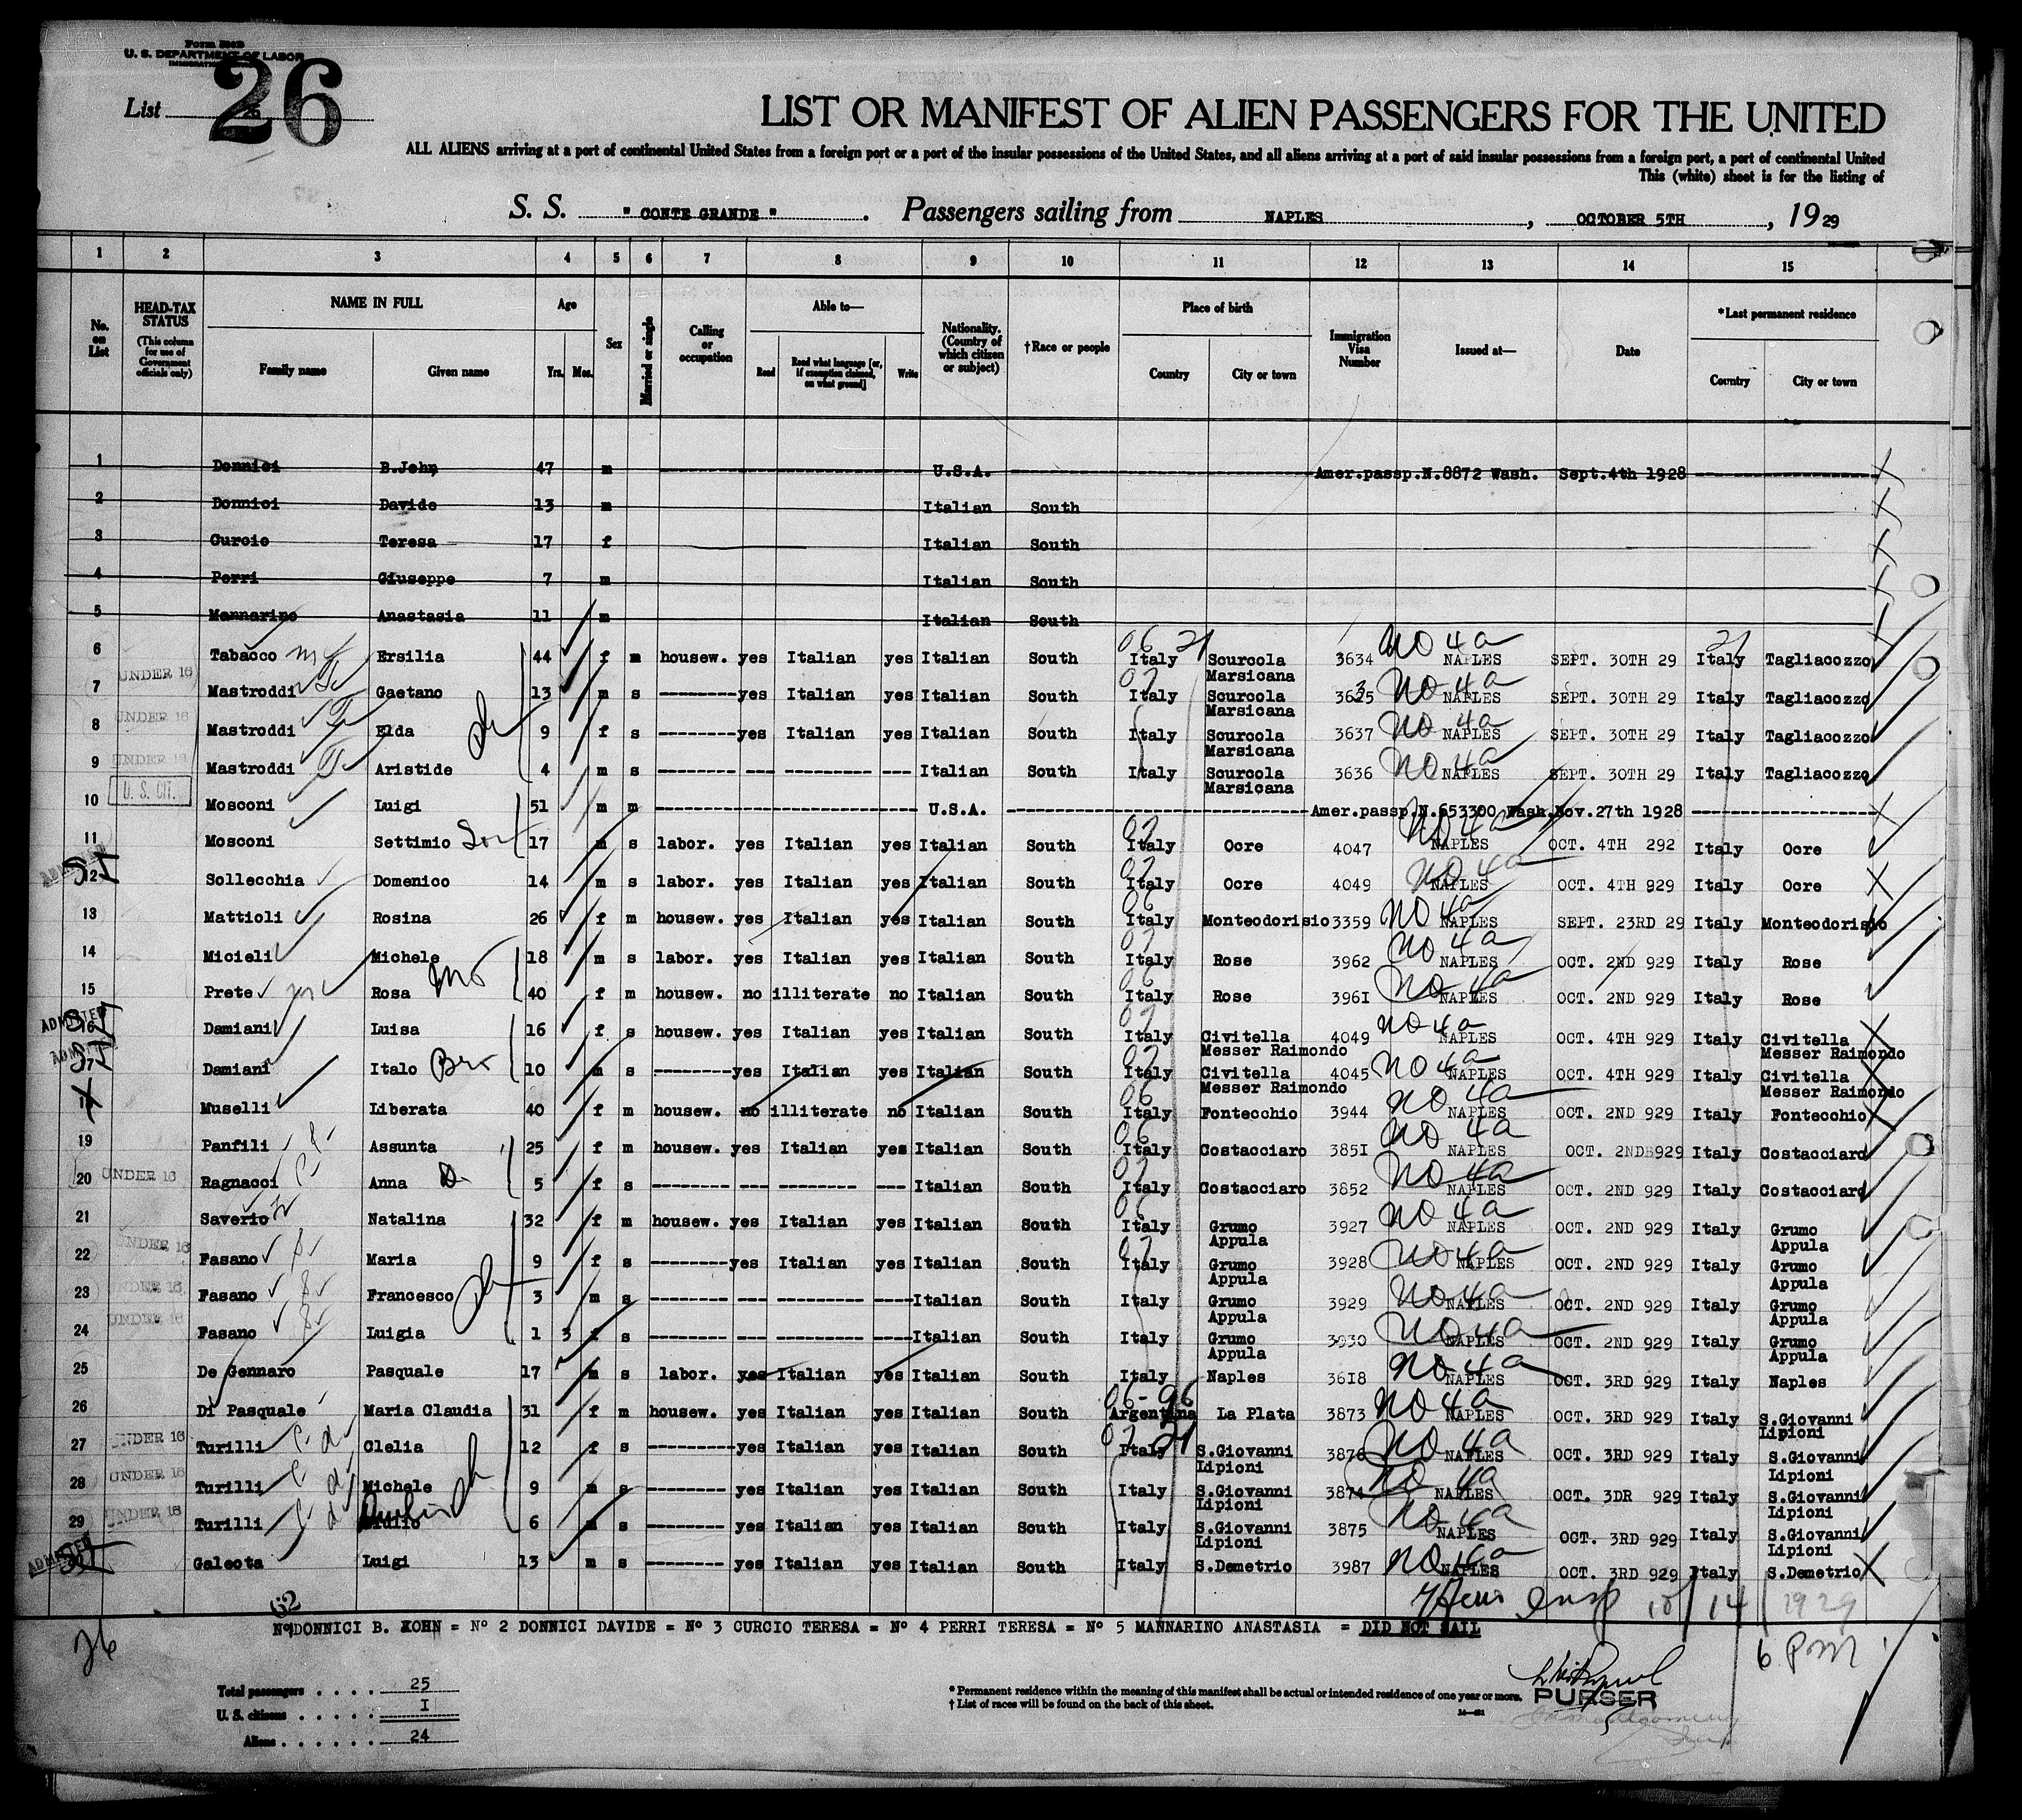 Form 500B
U. S. DEPARTMENT OF LABOR
List 26
LIST OR MANIFEST OF ALIEN PASSENGERS FOR THE UNITED
ALL ALIENS arriving at a port of continental United States from a foreign port or a port of the insular possessions of the United States, and all aliens arriving at a port of said insular possessions from a foreign port, a port of continental United
This (white) sheet is for the listing of
S. S. " CONTE GRANDE " . Passengers sailing from NAPLES , OCTOBER 5TH , 1929
1 2 3 4 5 6 7 8 9 10 11 12 13 14 15
No. on List
HEAD-TAX STATUS (This column for use of Government officials only)
NAME IN FULL Family name Given name
Age Yrs. Mos.
Sex
Married or single
Calling or occupation
Able to— Read Read what language [or, if exemption claimed, on what ground] Write
Nationality. (Country of which citizen or subject)
†Race or people
Place of birth Country City or town
Immigration Visa Number
Issued at—
Date
*Last permanent residence Country City or town
1 Donnici B.John 47 m U.S.A. Amer.passp.N.8872 Wash. Sept.4th 1928
2 Donnici Davide 13 m Italian South
3 Curcio Teresa 17 f Italian South
4 Perri Giuseppe 7 m Italian South
5 Mannarino Anastasia 11 m Italian South
6 Tabacco Ersilia 44 f m housew. yes Italian yes Italian South Italy Sourcola Marsicana 3634 NO 4a NAPLES SEPT. 30TH 29 Italy Tagliacozzo
7 UNDER 16 Mastroddi Gaetano 13 m s yes Italian yes Italian South Italy Sourcola Marsicana 3635 NO 4a NAPLES SEPT. 30TH 29 Italy Tagliacozzo
8 UNDER 16 Mastroddi Elda 9 f s yes Italian yes Italian South Italy Sourcola Marsicana 3637 NO 4a NAPLES SEPT. 30TH 29 Italy Tagliacozzo
9 UNDER 16 Mastroddi Aristide 4 m s Italian South Italy Sourcola Marsicana 3636 NO 4a NAPLES SEPT. 30TH 29 Italy Tagliacozzo
10 U. S. CIT. Mosconi Luigi 51 m m U.S.A. Amer.passp.N.653300 Wash.Nov.27th 1928
11 Mosconi Settimio Son 17 m s labor. yes Italian yes Italian South Italy Ocre 4047 NO 4a NAPLES OCT. 4TH 292 Italy Ocre
12 ADMITTED SI Sollecchia Domenico 14 m s labor. yes Italian yes Italian South Italy Ocre 4049 NO 4a NAPLES OCT. 4TH 929 Italy Ocre
13 Mattioli Rosina 26 f m housew. yes Italian yes Italian South Italy Monteodorisio 3359 NO 4a NAPLES SEPT. 23RD 29 Italy Monteodorisio
14 Micieli Michele 18 m s labor. yes Italian yes Italian South Italy Rose 3962 NO 4a NAPLES OCT. 2ND 929 Italy Rose
15 Prete Rosa Mo 40 f m housew. no illiterate no Italian South Italy Rose 396I NO 4a NAPLES OCT. 2ND 929 Italy Rose
16 ADMITTED SI Damiani Luisa 16 f s housew. yes Italian yes Italian South Italy Civitella Messer Raimondo 4049 NO 4a NAPLES OCT. 4TH 929 Italy Civitella Messer Raimondo
17 ADMITTED SI Damiani Italo Bro 10 m s yes Italian yes Italian South Italy Civitella Messer Raimondo 4045 NO 4a NAPLES OCT. 4TH 929 Italy Civitella Messer Raimondo
Muselli Liberata 40 f m housew. no illiterate no Italian South Italy Fontecchio 3944 NO 4a NAPLES OCT. 2ND 929 Italy Fontecchio
19 Panfili Assunta 25 f m housew. yes Italian yes Italian South Italy Costacciaro 385I NO 4a NAPLES OCT. 2ND 929 Italy Costacciaro
20 UNDER 16 Ragnacci Anna D 5 f s Italian South Italy Costacciaro 3852 NO 4a NAPLES OCT. 2ND 929 Italy Costacciaro
21 Saverio Natalina 32 f m housew. yes Italian yes Italian South Italy Grumo Appula 3927 NO 4a NAPLES OCT. 2ND 929 Italy Grumo Appula
22 UNDER 16 Fasano Maria 9 f s yes Italian yes Italian South Italy Grumo Appula 3928 NO 4a NAPLES OCT. 2ND 929 Italy Grumo Appula
23 UNDER 16 Fasano Francesco 3 m s Italian South Italy Grumo Appula 3929 NO 4a NAPLES OCT. 2ND 929 Italy Grumo Appula
24 UNDER 16 Fasano Luigia 1 3 f s Italian South Italy Grumo Appula 3930 NO 4a NAPLES OCT. 2ND 929 Italy Grumo Appula
25 De Gennaro Pasquale 17 m s labor. yes Italian yes Italian South Italy Naples 36I8 NO 4a NAPLES OCT. 3RD 929 Italy Naples
26 Di Pasquale Maria Claudia 31 f m housew. yes Italian yes Italian South Argentina La Plata 3873 NO 4a NAPLES OCT. 3RD 929 Italy S.Giovanni Lipioni
27 UNDER 16 Turilli Clelia 12 f s yes Italian yes Italian South Italy S.Giovanni Lipioni 3876 NO 4a NAPLES OCT. 3RD 929 Italy S.Giovanni Lipioni
28 UNDER 16 Turilli Michele 9 m s yes Italian yes Italian South Italy S.Giovanni Lipioni 3874 NO 4a NAPLES OCT. 3DR 929 Italy S.Giovanni Lipioni
29 UNDER 16 Turilli 6 m s yes Italian yes Italian South Italy S.Giovanni Lipioni 3875 NO 4a NAPLES OCT. 3RD 929 Italy S.Giovanni Lipioni
ADMITTED SI Galeota Luigi 13 m s yes Italian yes Italian South Italy S.Demetrio 3987 NO 4a NAPLES OCT. 3RD 929 Italy S.Demetrio
Insp 10/14/1929
62
Nº1 DONNICI B. KOHN = Nº 2 DONNICI DAVIDE = Nº 3 CURCIO TERESA = Nº 4 PERRI TERESA = Nº 5 MANNARINO ANASTASIA = DID NOT SAIL
26
6 PM
Total passengers . . . . 25
U. S. citizens . . . . . I
Aliens . . . . . . 24
* Permanent residence within the meaning of this manifest shall be actual or intended residence of one year or more.
† List of races will be found on the back of this sheet.
PURSER